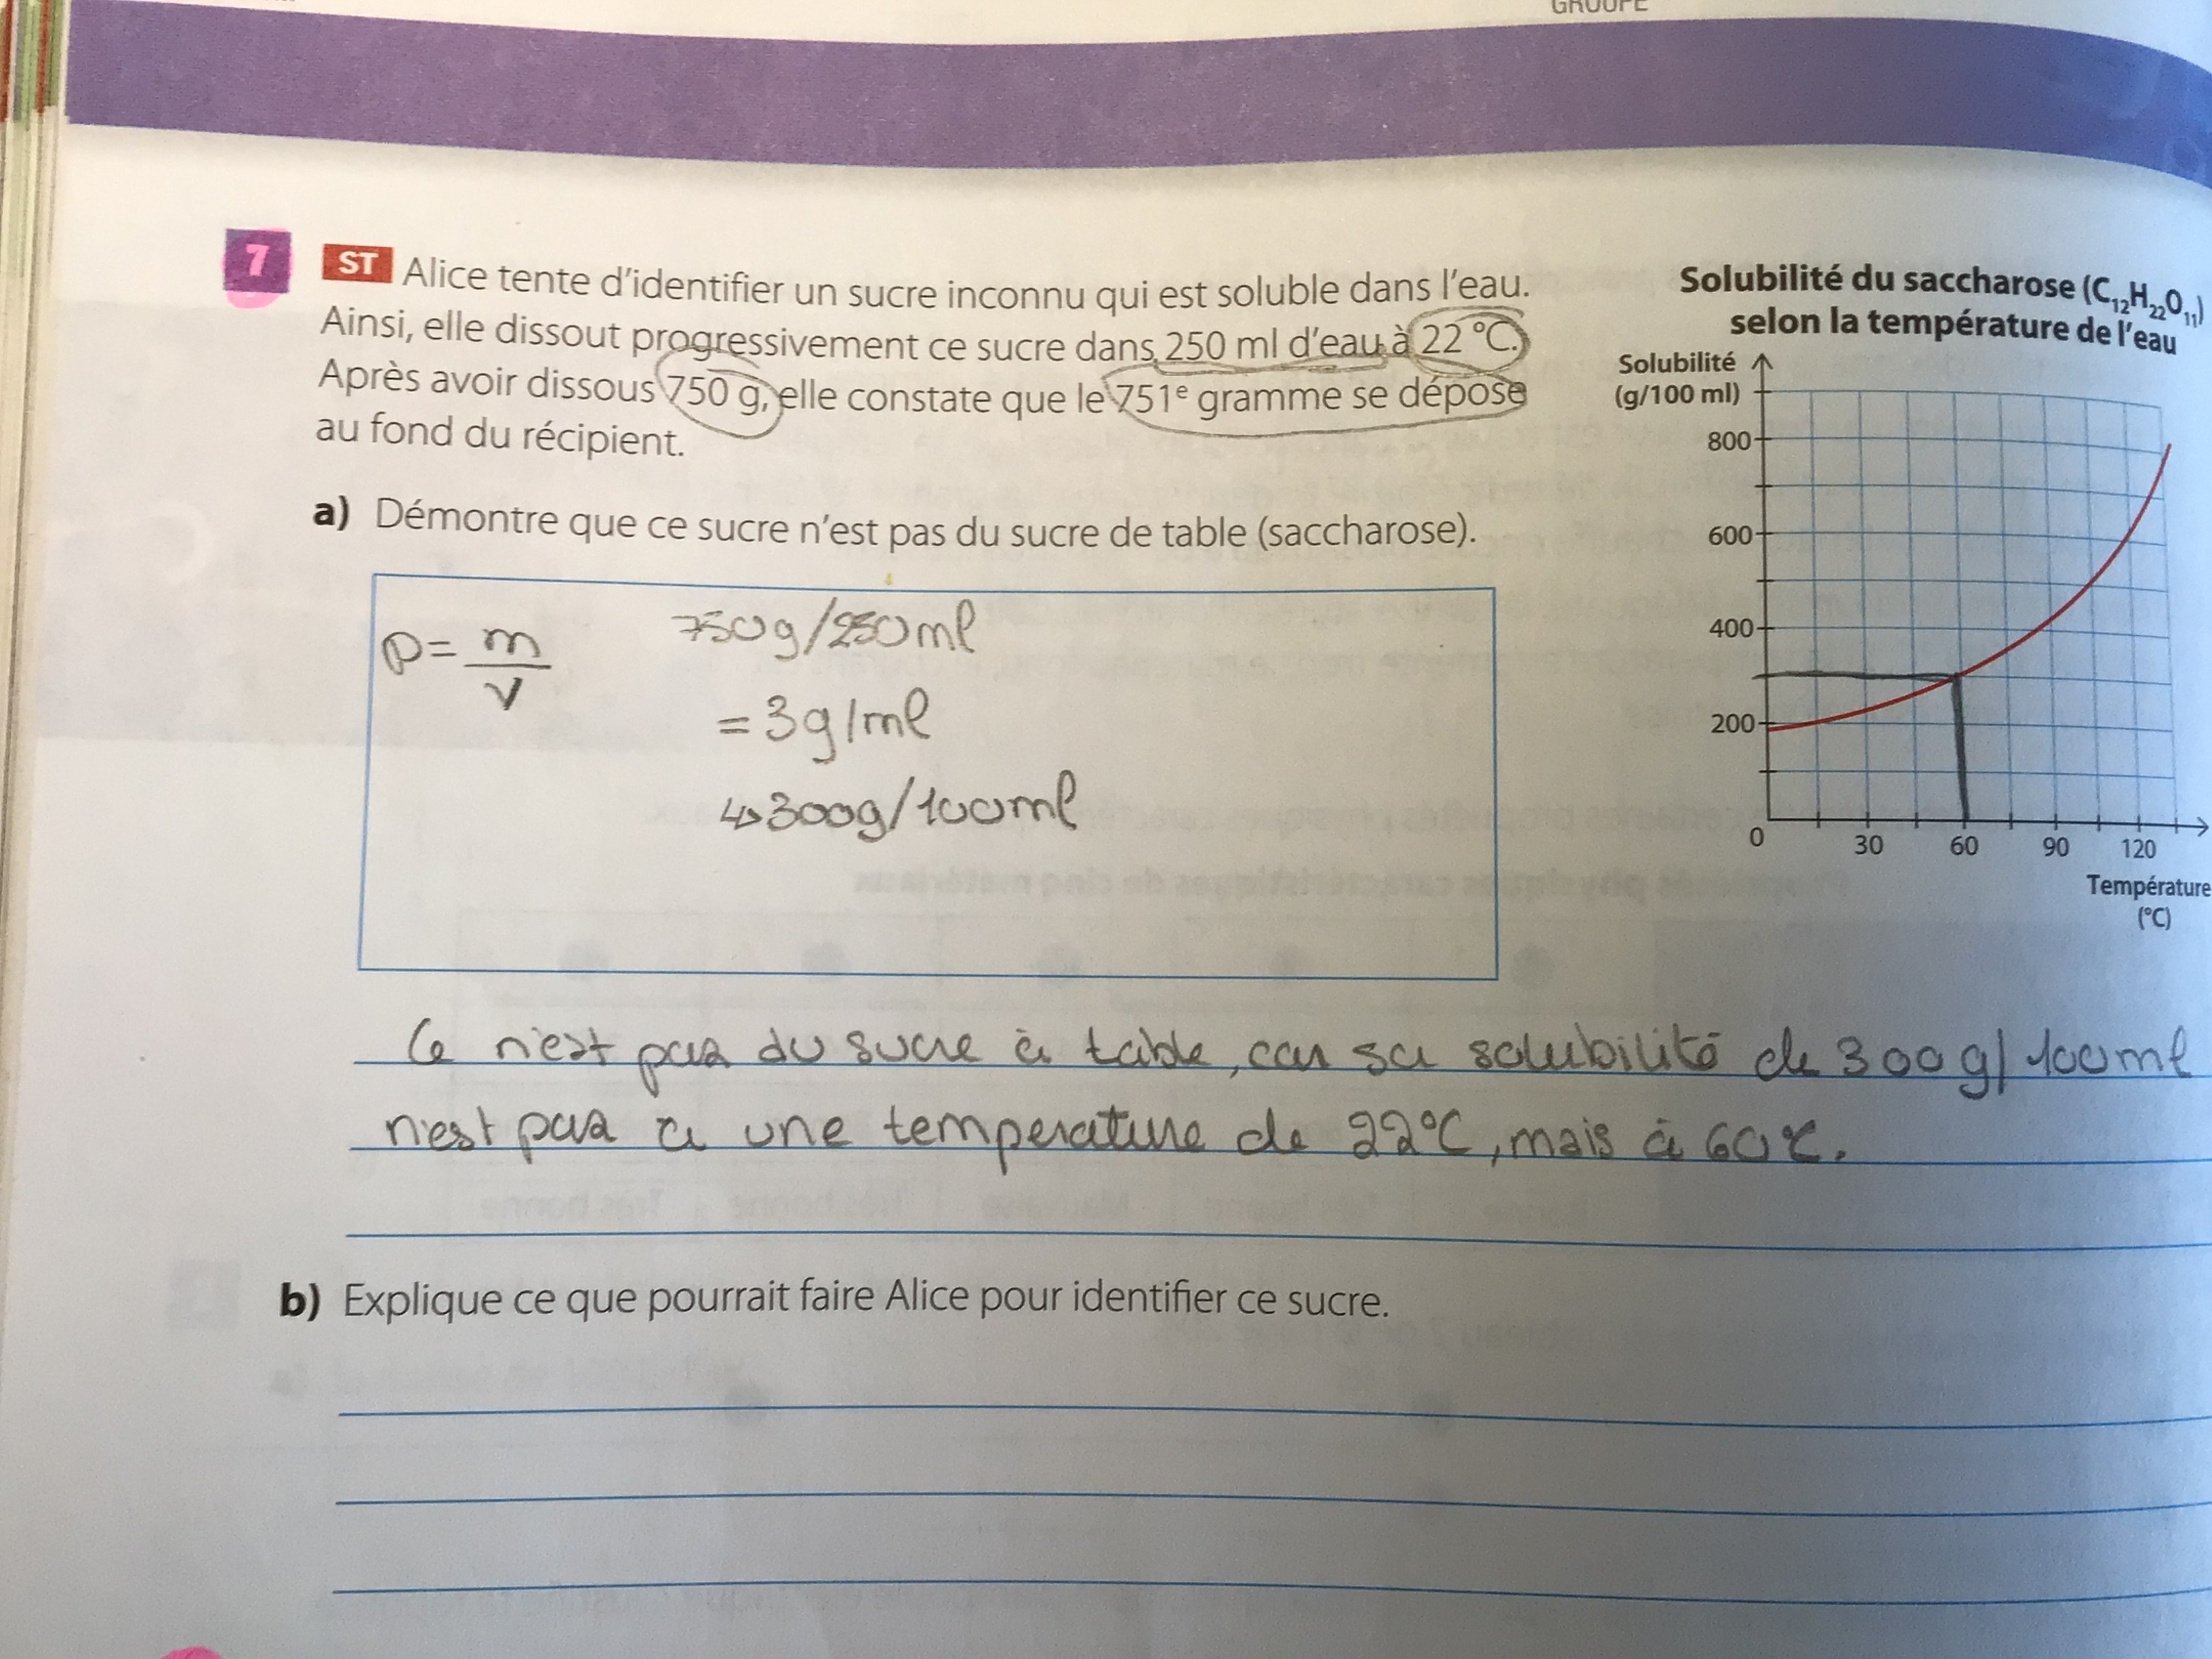 GROUPE
7 ST Alice tente d'identifier un sucre inconnu qui est soluble dans l'eau.
Ainsi, elle dissout progressivement ce sucre dans 250 ml d'eau à 22 °C.
Après avoir dissous 750 g, elle constate que le 751e gramme se dépose
au fond du récipient.
Solubilité du saccharose (C12H22O11)
selon la température de l'eau
Solubilité
(g/100 ml)
800
600
400
200
0 30 60 90 120
Température
(°C)
a) Démontre que ce sucre n'est pas du sucre de table (saccharose).
ρ = m/v
750g/250ml
= 3g/ml
↳ 300g/100ml
Ce n'est pas du sucre à table, car sa solubilité de 300g/100ml
n'est pas à une temperature de 22°C, mais à 60°C.
b) Explique ce que pourrait faire Alice pour identifier ce sucre.